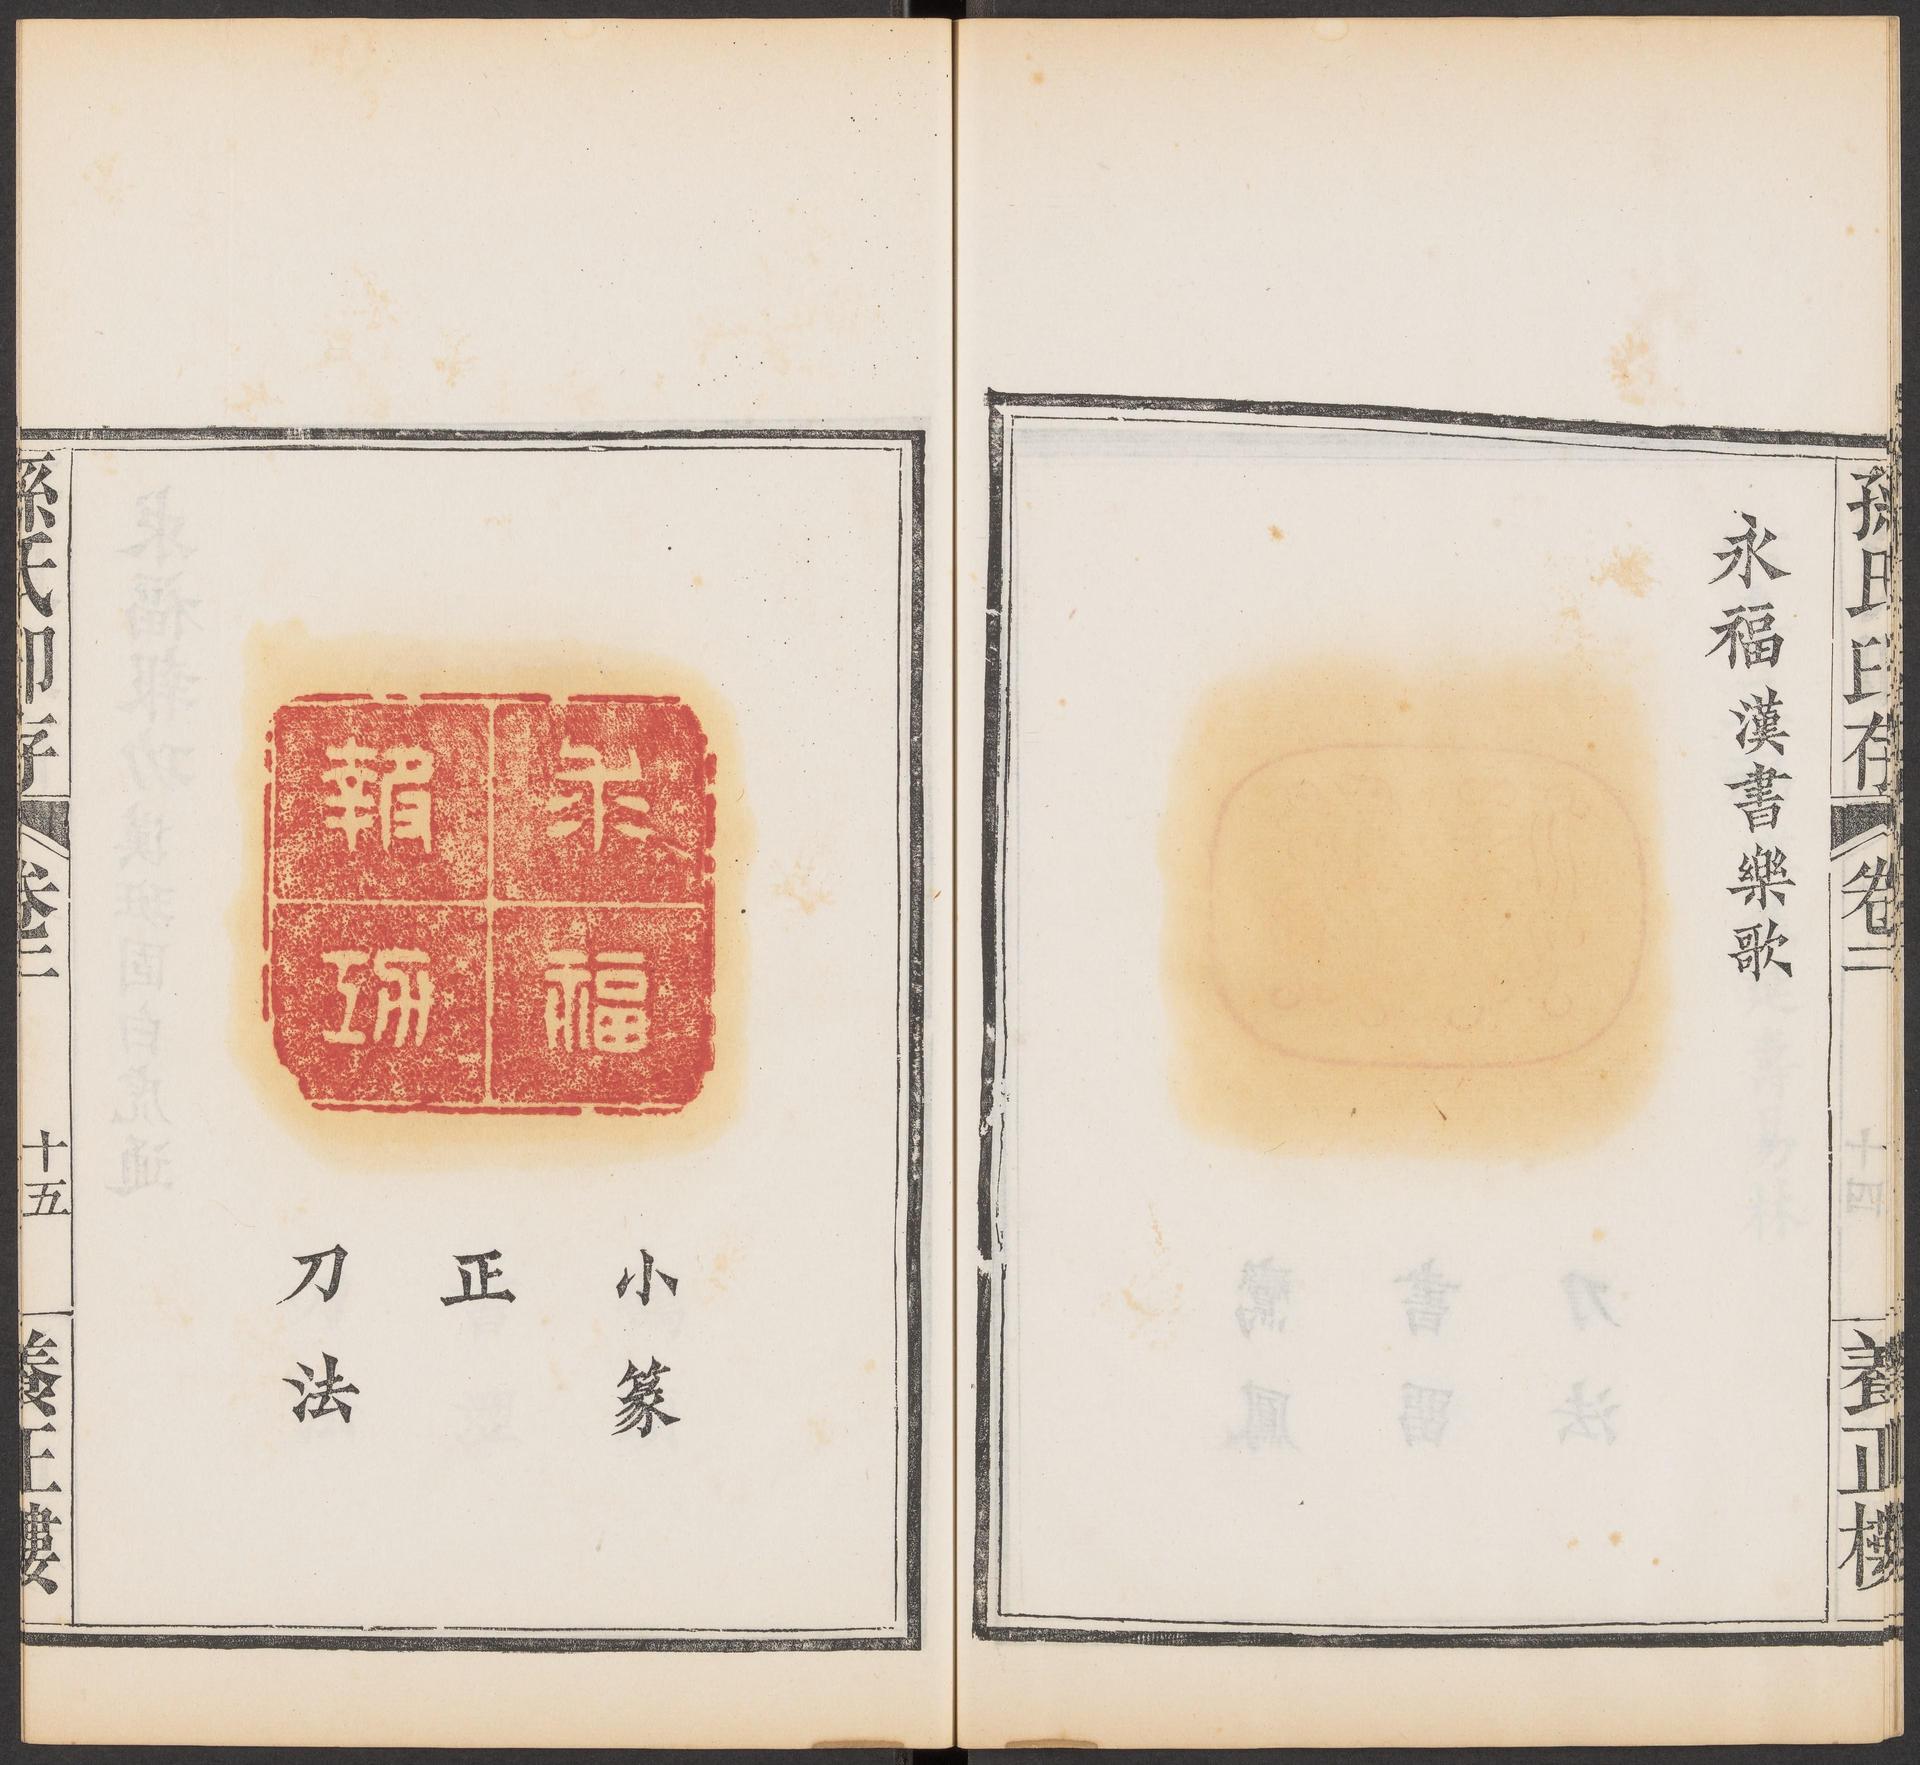 孫氏印存
卷二
養正樓
永福漢書樂歌
永福報功
小篆
正
刀法
孫氏印存
卷二
十五
養正樓